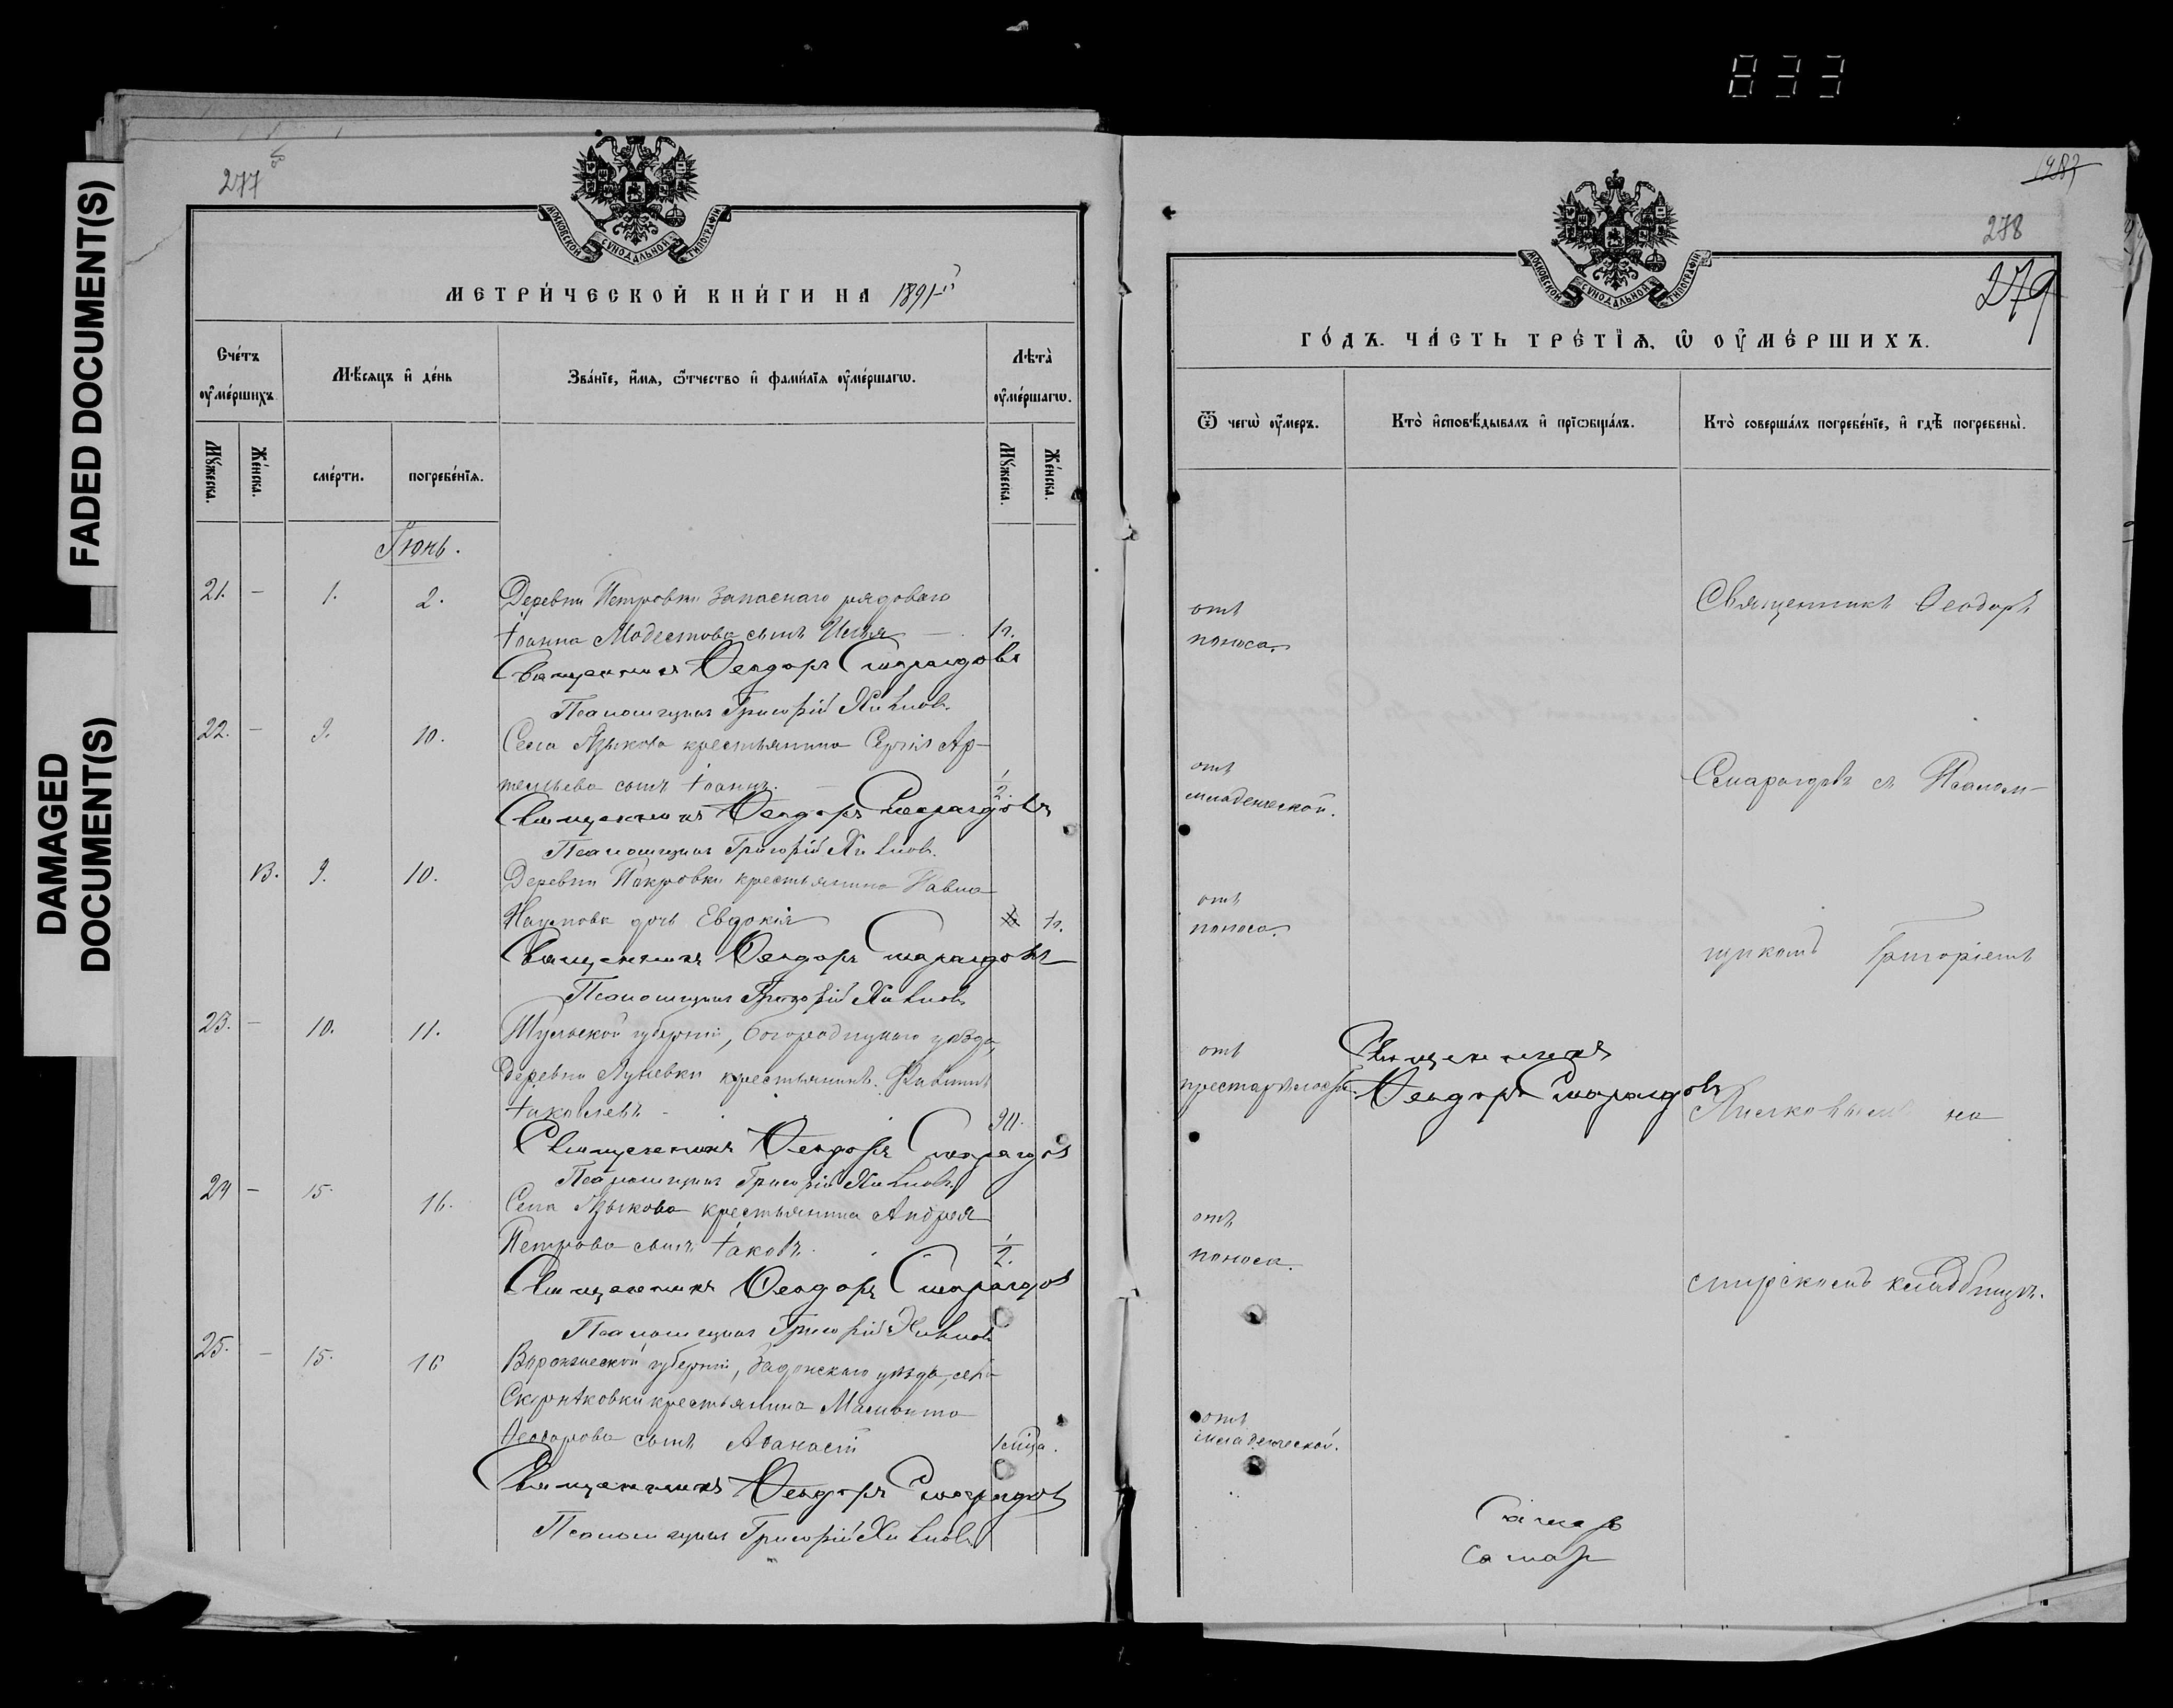 833
FADED DOCUMENT(S)
DAMAGED
DOCUMENT(S)
277
МОСКОВСКОЙ СѴНОДАЛЬНОЙ ТИПОГРАФІИ
МЕТРИЧЕСКОЙ КНИГИ НА 1891-й
Счетъ
ѹмершихъ.
Мѣсяцъ и день
Званіе, имя, ѿтчество и фамилія ѹмершагѡ.
Лѣта
ѹмершагѡ.
Мужеска.
Женска.
смерти.
погребенія.
Мужеска.
Женска.
Іюнь.
21. – 1. 2. Деревни Петровки запаснаго рядоваго
Іоанна Модестова сынъ Илья
Священникъ Ѳеодоръ Смарагдовъ
Псаломщикъ Григорій
22. – 9. 10. Села Языкова крестьянина Сергія Ар-
темьева сынъ Іоаннъ. 1/2.
Священникъ Ѳеодоръ Смарагдовъ
Псаломщикъ Григорій
13. 9. 10. Деревни Покровки крестьянина Павла
Наумова дочь Евдокія
Священникъ Ѳеодоръ Смарагдовъ
Псаломщикъ Григорій
23. – 10. 11. Тульской губерніи, Богородицкаго уѣзда,
деревни Луневки крестьянинъ
Іаковлевъ 90.
Священникъ Ѳеодоръ Смарагдовъ
Псаломщикъ Григорій
24 – 15. 16. Села Языкова крестьянина Андрея
Петрова сынъ Іаковъ. 1/2.
Священникъ Ѳеодоръ Смарагдовъ
Псаломщикъ Григорій
25. – 15. 16 Воронежской губерніи, Задонскаго уѣзда, села
крестьянина Мамонта
Ѳеодорова сынъ Аѳанасій
Священникъ Ѳеодоръ Смарагдовъ
Псаломщикъ Григорій
278
279
МОСКОВСКОЙ СѴНОДАЛЬНОЙ ТИПОГРАФІИ
ГОДЪ. ЧАСТЬ ТРЕТІЯ, Ѡ ОУМЕРШИХЪ.
Ѿ чегѡ ѹмеръ.
Кто исповѣдывалъ и пріѡбщалъ.
Кто совершалъ погребеніе, и гдѣ погребены.
отъ
поноса.
Священникъ Ѳеодоръ
отъ
младенческой.
Смарагдовъ съ Псалом-
отъ
поноса.
щикомъ Григоріемъ
отъ
престарѣлости.
Священникъ
Ѳеодоръ Смарагдовъ
на
отъ
поноса.
мірскомъ кладбищѣ.
отъ
младенческой.